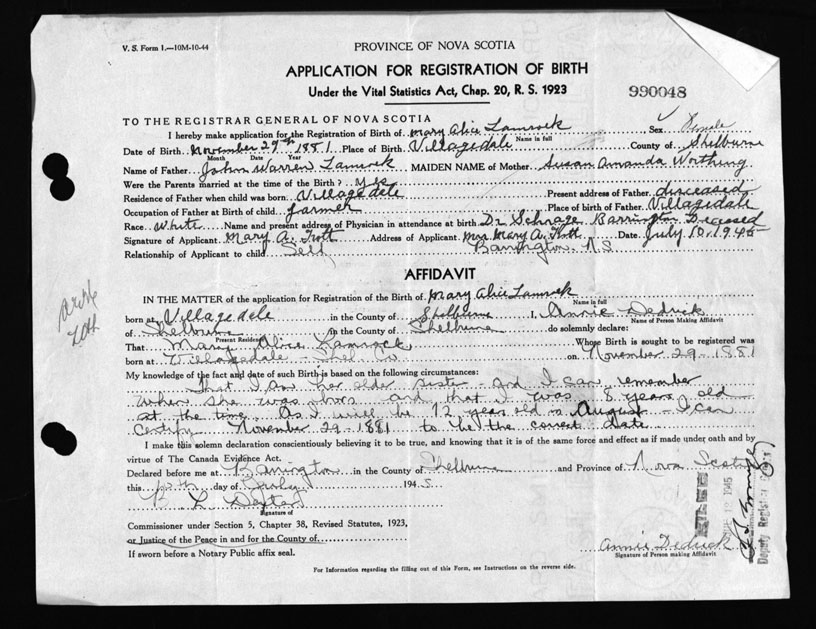 V. S. Form 1.—10M-10-44
PROVINCE OF NOVA SCOTIA
APPLICATION FOR REGISTRATION OF BIRTH
Under the Vital Statistics Act, Chap. 20, R. S. 1923
990048
TO THE REGISTRAR GENERAL OF NOVA SCOTIA
I hereby make application for the Registration of Birth of Mary Alice Lamrock Sex Female
Name in full
Date of Birth November 29th 1881 Place of Birth Villagedale County of Shelburne
Month Date Year
Name of Father John Warren Lamrock MAIDEN NAME of Mother Susan Amanda Worthing
Were the Parents married at the time of the Birth? yes
Residence of Father when child was born Villagedale Present address of Father diseased
Occupation of Father at Birth of child farmer Place of birth of Father Villagedale
Race White Name and present address of Physician in attendance at birth Dr Schrage Barrington Deceased
Signature of Applicant Mary A. Trott Address of Applicant Mrs Mary A. Trott Date July 10. 1945
Relationship of Applicant to child Self Barrington. N.S.
AFFIDAVIT
IN THE MATTER of the application for Registration of the Birth of Mary Alice Lamrock
Name in full
born at Villagedale in the County of Shelburne I, Annie Dedrick
Name of Person Making Affidavit
of Shelburne in the County of Shelburne do solemnly declare:
Present Residence
That Mary Alice Lamrock Whose Birth is sought to be registered was
born at Villagedale - Shel. Co on November 29 - 1881
My knowledge of the fact and date of such Birth is based on the following circumstances:
That I am her older sister - and I can remember
when she was born and that I was 8 years old
at the time. As I will be 72 year old in August - I can
Certify November 29 - 1881 to be the correct date
I make this solemn declaration conscientiously believing it to be true, and knowing that it is of the same force and effect as if made under oath and by
virtue of The Canada Evidence Act.
Declared before me at Barrington in the County of Shelburne and Province of Nova Scotia
this 10th day of July 1945
Signature of
Commissioner under Section 5, Chapter 38, Revised Statutes, 1923,
or Justice of the Peace in and for the County of
If sworn before a Notary Public affix seal.
Annie Dedrick
Signature of Person making Affidavit
FILED
1945
Deputy Registrar
For Information regarding the filling out of this form, see Instructions on the reverse side.